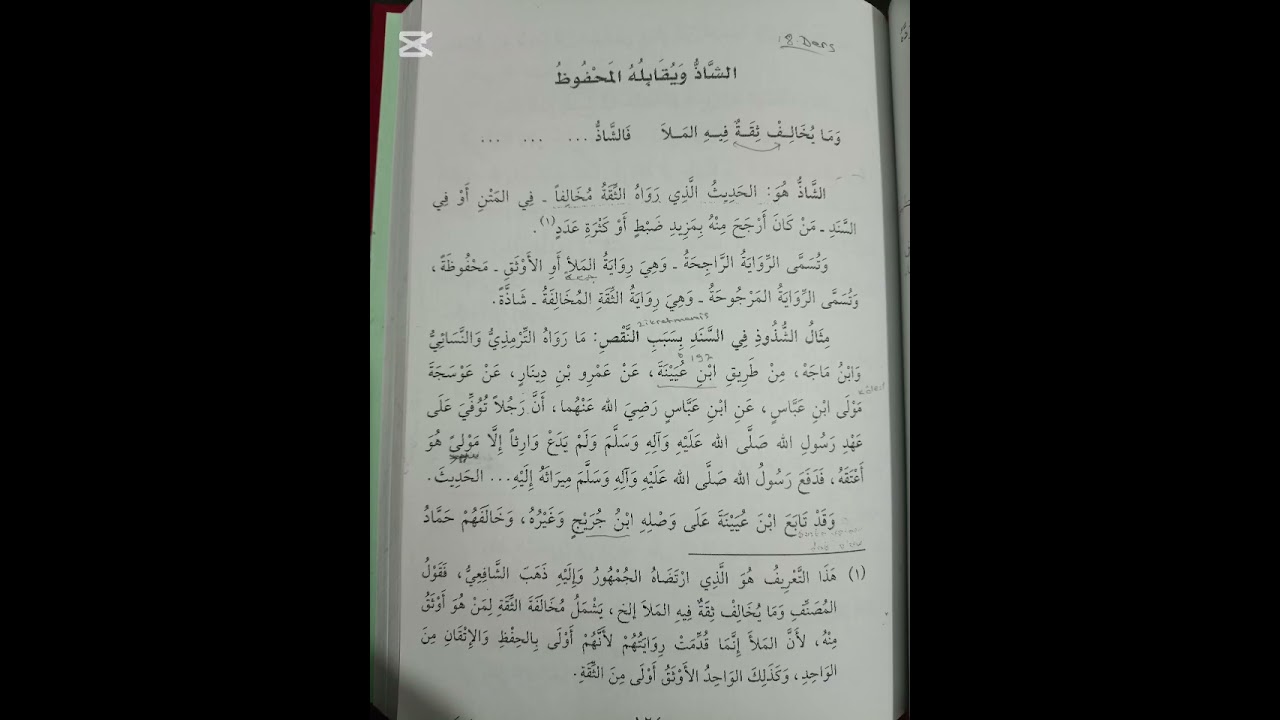 18. Ders
الشَّاذُّ وَيُقَابِلُهُ المَحْفُوظُ
وَمَا يُخَالِفْ ثِقَةٌ فِيهِ المَلاَ فَالشَّاذُّ ... ... ...
الشَّاذُّ هُوَ: الحَدِيثُ الَّذِي رَوَاهُ الثِّقَةُ مُخَالِفاً ـ فِي المَتْنِ أَوْ فِي
السَّنَدِ ـ مَنْ كَانَ أَرْجَحَ مِنْهُ بِمَزِيدِ ضَبْطٍ أَوْ كَثْرَةِ عَدَدٍ(١).
وَتُسَمَّى الرِّوَايَةُ الرَّاجِحَةُ ـ وَهِيَ رِوَايَةُ المَلأِ أَوِ الأَوْثَقِ ـ مَحْفُوظَةً،
وَتُسَمَّى الرِّوَايَةُ المَرْجُوحَةُ ـ وَهِيَ رِوَايَةُ الثِّقَةِ المُخَالِفَةُ ـ شَاذَّةً.
مِثَالُ الشُّذُوذِ فِي السَّنَدِ بِسَبَبِ النَّقْصِ: مَا رَوَاهُ التِّرْمِذِيُّ وَالنَّسَائِيُّ
وَابْنُ مَاجَهْ، مِنْ طَرِيقِ ابْنِ عُيَيْنَةَ، عَنْ عَمْرِو بْنِ دِينَارٍ، عَنْ عَوْسَجَةَ
مَوْلَى ابْنِ عَبَّاسٍ، عَنِ ابْنِ عَبَّاسٍ رَضِيَ الله عَنْهُما، أَنَّ رَجُلاً تُوُفِّيَ عَلَى
عَهْدِ رَسُولِ الله صَلَّى الله عَلَيْهِ وَآلِهِ وَسَلَّمَ وَلَمْ يَدَعْ وَارِثاً إِلَّا مَوْلىً هُوَ
أَعْتَقَهُ، فَدَفَعَ رَسُولُ الله صَلَّى الله عَلَيْهِ وَآلِهِ وَسَلَّمَ مِيرَاثَهُ إِلَيْهِ... الحَدِيثَ.
وَقَدْ تَابَعَ ابْنَ عُيَيْنَةَ عَلَى وَصْلِهِ ابْنُ جُرَيْجٍ وَغَيْرُهُ، وَخَالَفَهُمْ حَمَّادُ
(١) هَذَا التَّعْرِيفُ هُوَ الَّذِي ارْتَضَاهُ الجُمْهُورُ وَإِلَيْهِ ذَهَبَ الشَّافِعِيُّ، فَقَوْلُ
المُصَنِّفِ وَمَا يُخَالِفْ ثِقَةٌ فِيهِ المَلاَ إلخ، يَشْمَلُ مُخَالَفَةَ الثِّقَةِ لِمَنْ هُوَ أَوْثَقُ
مِنْهُ، لأَنَّ المَلأَ إِنَّمَا قُدِّمَتْ رِوَايَتُهُمْ لأَنَّهُمْ أَوْلَى بِالحِفْظِ وَالإِتْقَانِ مِنَ
الوَاحِدِ، وَكَذَلِكَ الوَاحِدُ الأَوْثَقُ أَوْلَى مِنَ الثِّقَةِ.